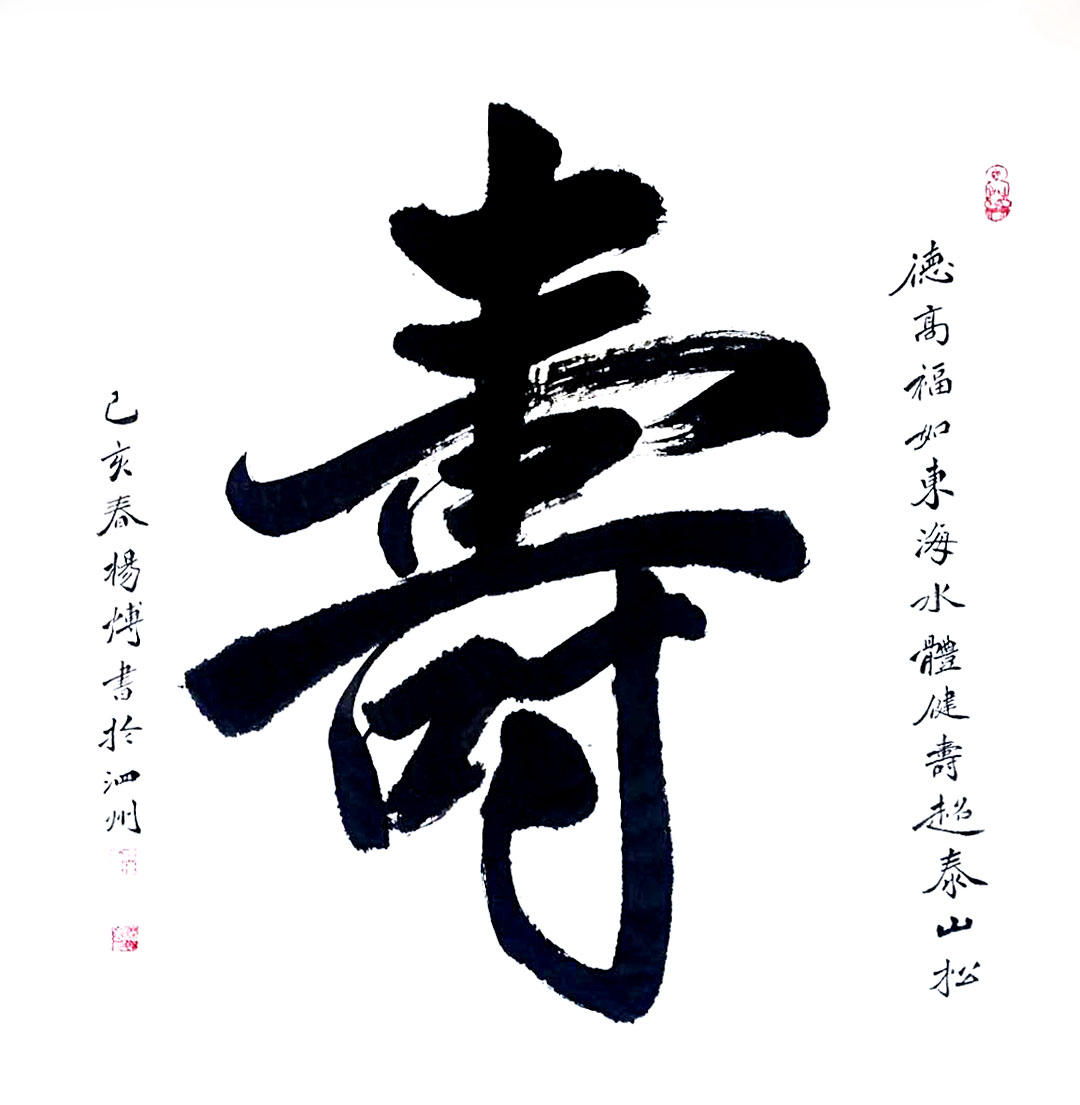 德高福如東海水體健壽超泰山松
壽
己亥春楊煿書於泗州